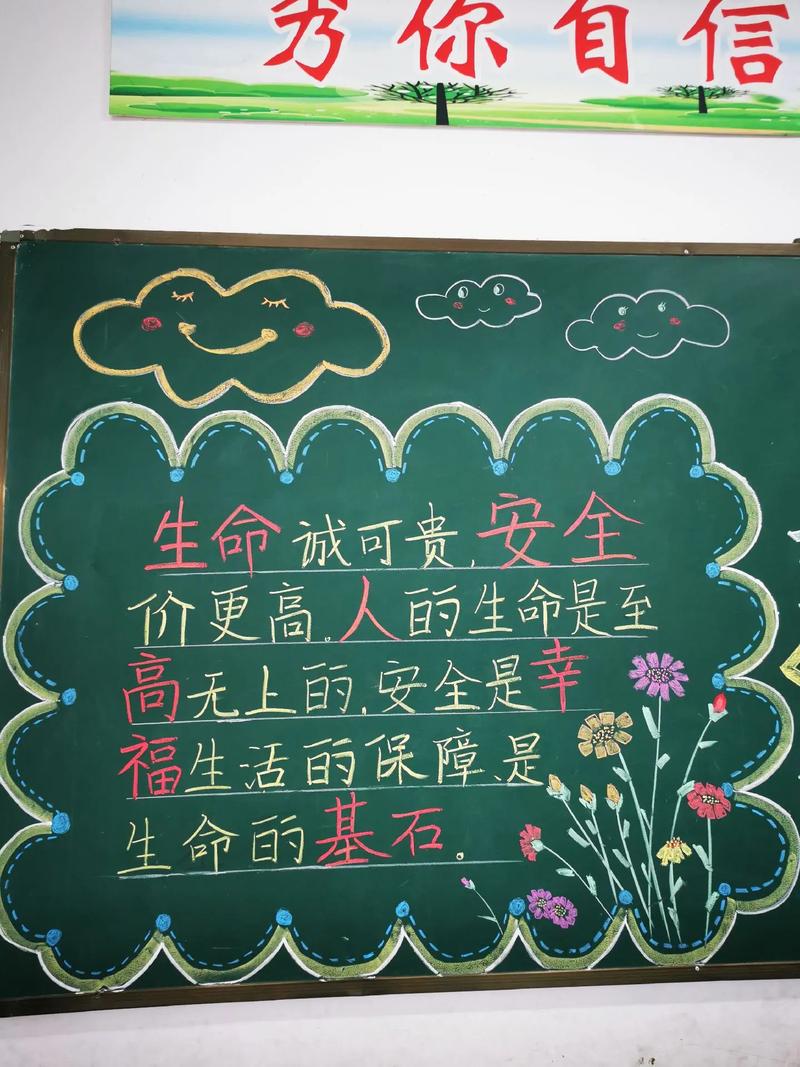 秀你自信
生命诚可贵,安全
价更高。人的生命是至
高无上的,安全是幸
福生活的保障、是
生命的基石。